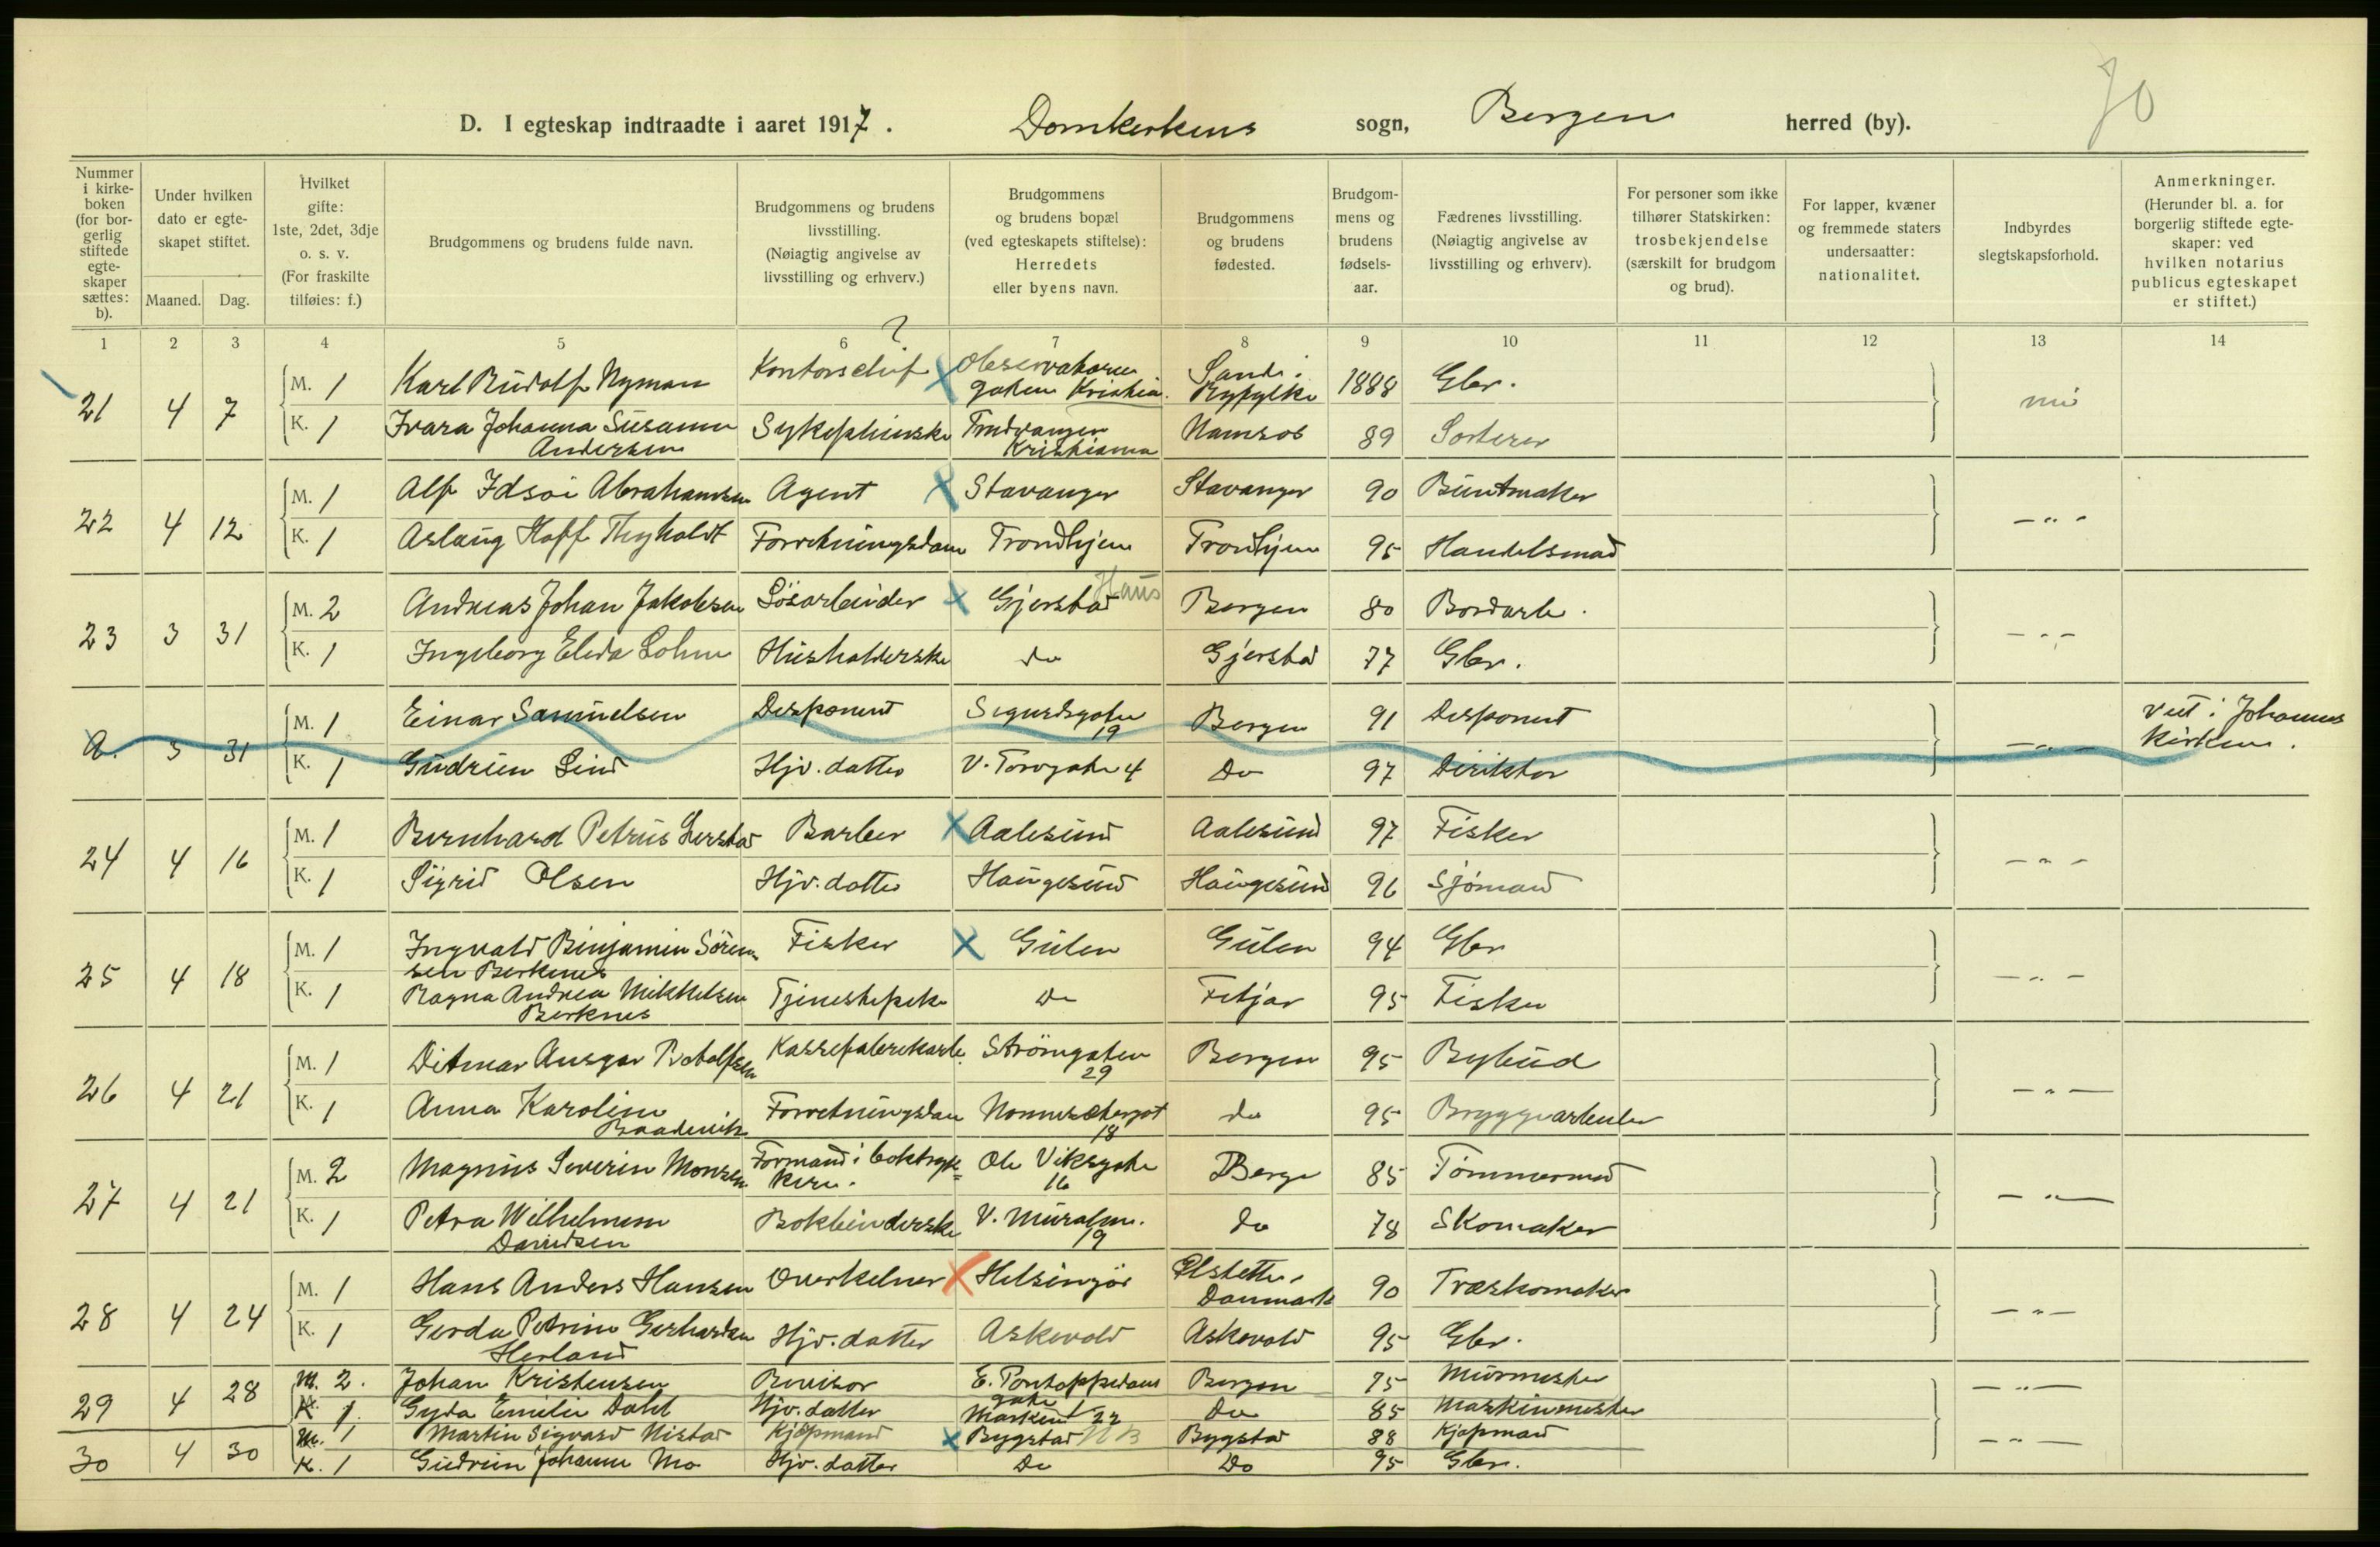 70
D. I egteskap indtraadte i aaret 1917. Domkirkens sogn, Bergen herred (by).
Nummer i kirke-boken (for bor-gerlig stiftede egte-skaper sættes: b).
Under hvilken dato er egte-skapet stiftet.
Maaned. Dag.
Hvilket gifte: 1ste, 2det, 3dje o. s. v. (For fraskilte tilføies: f.)
Brudgommens og brudens fulde navn.
Brudgommens og brudens livsstilling. (Nøiagtig angivelse av livsstilling og erhverv.)
Brudgommens og brudens bopæl (ved egteskapets stiftelse): Herredets eller byens navn.
Brudgommens og brudens fødested.
Brudgom-mens og brudens fødsels-aar.
Fædrenes livsstilling. (Nøiagtig angivelse av livsstilling og erhverv).
For personer som ikke tilhører Statskirken: trosbekjendelse (særskilt for brudgom og brud).
For lapper, kvæner og fremmede staters undersaatter: nationalitet.
Indbyrdes slegtskapsforhold.
Anmerkninger. (Herunder bl. a. for borgerlig stiftede egte-skaper: ved hvilken notarius publicus egteskapet er stiftet.)
1 2 3 4 5 6 7 8 9 10 11 12 13 14
?
21 4 7 M. 1 Karl Rudolf Nyman Kontorschef X Observatorie gaten Kristia. Sand i Ryfylke 1888 Gbr. nei
K. 1 Ivara Johanna Susanne Andersen Sykepleierske Kristiania Namsos 89 Sorterer
22 4 12 M. 1 Alf Idsøe Abrahamsen Agent X Stavanger Stavanger 90 Buntmaker - " -
K. 1 Aslaug Hoff Thyholdt Forretningsdame Trondhjem Trondhjem 95 Handelsmand
23 3 31 M. 2 Andreas Johan Jakobsen Løsarbeider X Gjerstad Haus Bergen 80 Bordarb. - " -
K. 1 Ingeborg Elida Lohne Husholderske do Gjerstad 77 Gbr.
a. 3 31 M. 1 Einar Samuelsen Disponent Sigurdsgaten 19 Bergen 91 Disponent - " - Viet i Johannes kirken.
K. 1 Gudrun Lind Hjv. datter V. Torvgate 4 Do 97 Direktør
24 4 16 M. 1 Bernhard Petrus Lerstad Barber X Aalesund Aalesund 97 Fisker - " -
K. 1 Sigrid Olsen Hjv. datter Haugesund Haugesund 96 Sjømand
25 4 18 M. 1 Ingvald Binjamin Sören-sen Berknes Fisker X Gulen Gulen 94 Gbr - " -
K. 1 Ragna Andrea Mikkelsen Berknes Tjenestepike Do Fitjar 95 Fisker
26 4 21 M. 1 Ditmar Ansgar Rodolfsen Strömgaten 29 Bergen 95 Bybud - " -
K. 1 Anna Karoline Forretningsdame 18 do 95 Bryggearbeider
27 4 21 M. 2 Magnus Severin Monsen Formand i boktryk-keri. Ole Viksgate 16 Berge 85 Tömmermd - " -
K. 1 Petra Wilhelmine Davidsen Bokbinderske V. Muralm. 19 do 78 Skomaker
28 4 24 M. 1 Hans Anders Hansen Overkelner X Helsingör Danmark 90 Træskomaker - " -
K. 1 Gerda Petrine Gerhardsen Herland Hjv. datter Askevold Askevold 95 Gbr.
29 4 28 M. 2. Johan Kristensen Revisor E. Pontoppidans gate Bergen 75 Murmester - " -
K. 1. Gyda Emilie Dahl Hjv. datter Marken 22 Do 85 Maskinmester
30 4 30 M. 1 Martin Sigvard Nistad Kjøpmand X Bygstad NB Bygstad 88 Kjøpmand - " -
K. 1 Gudrun Johanne Mo Hjv. datter Do Do 95 Gbr.